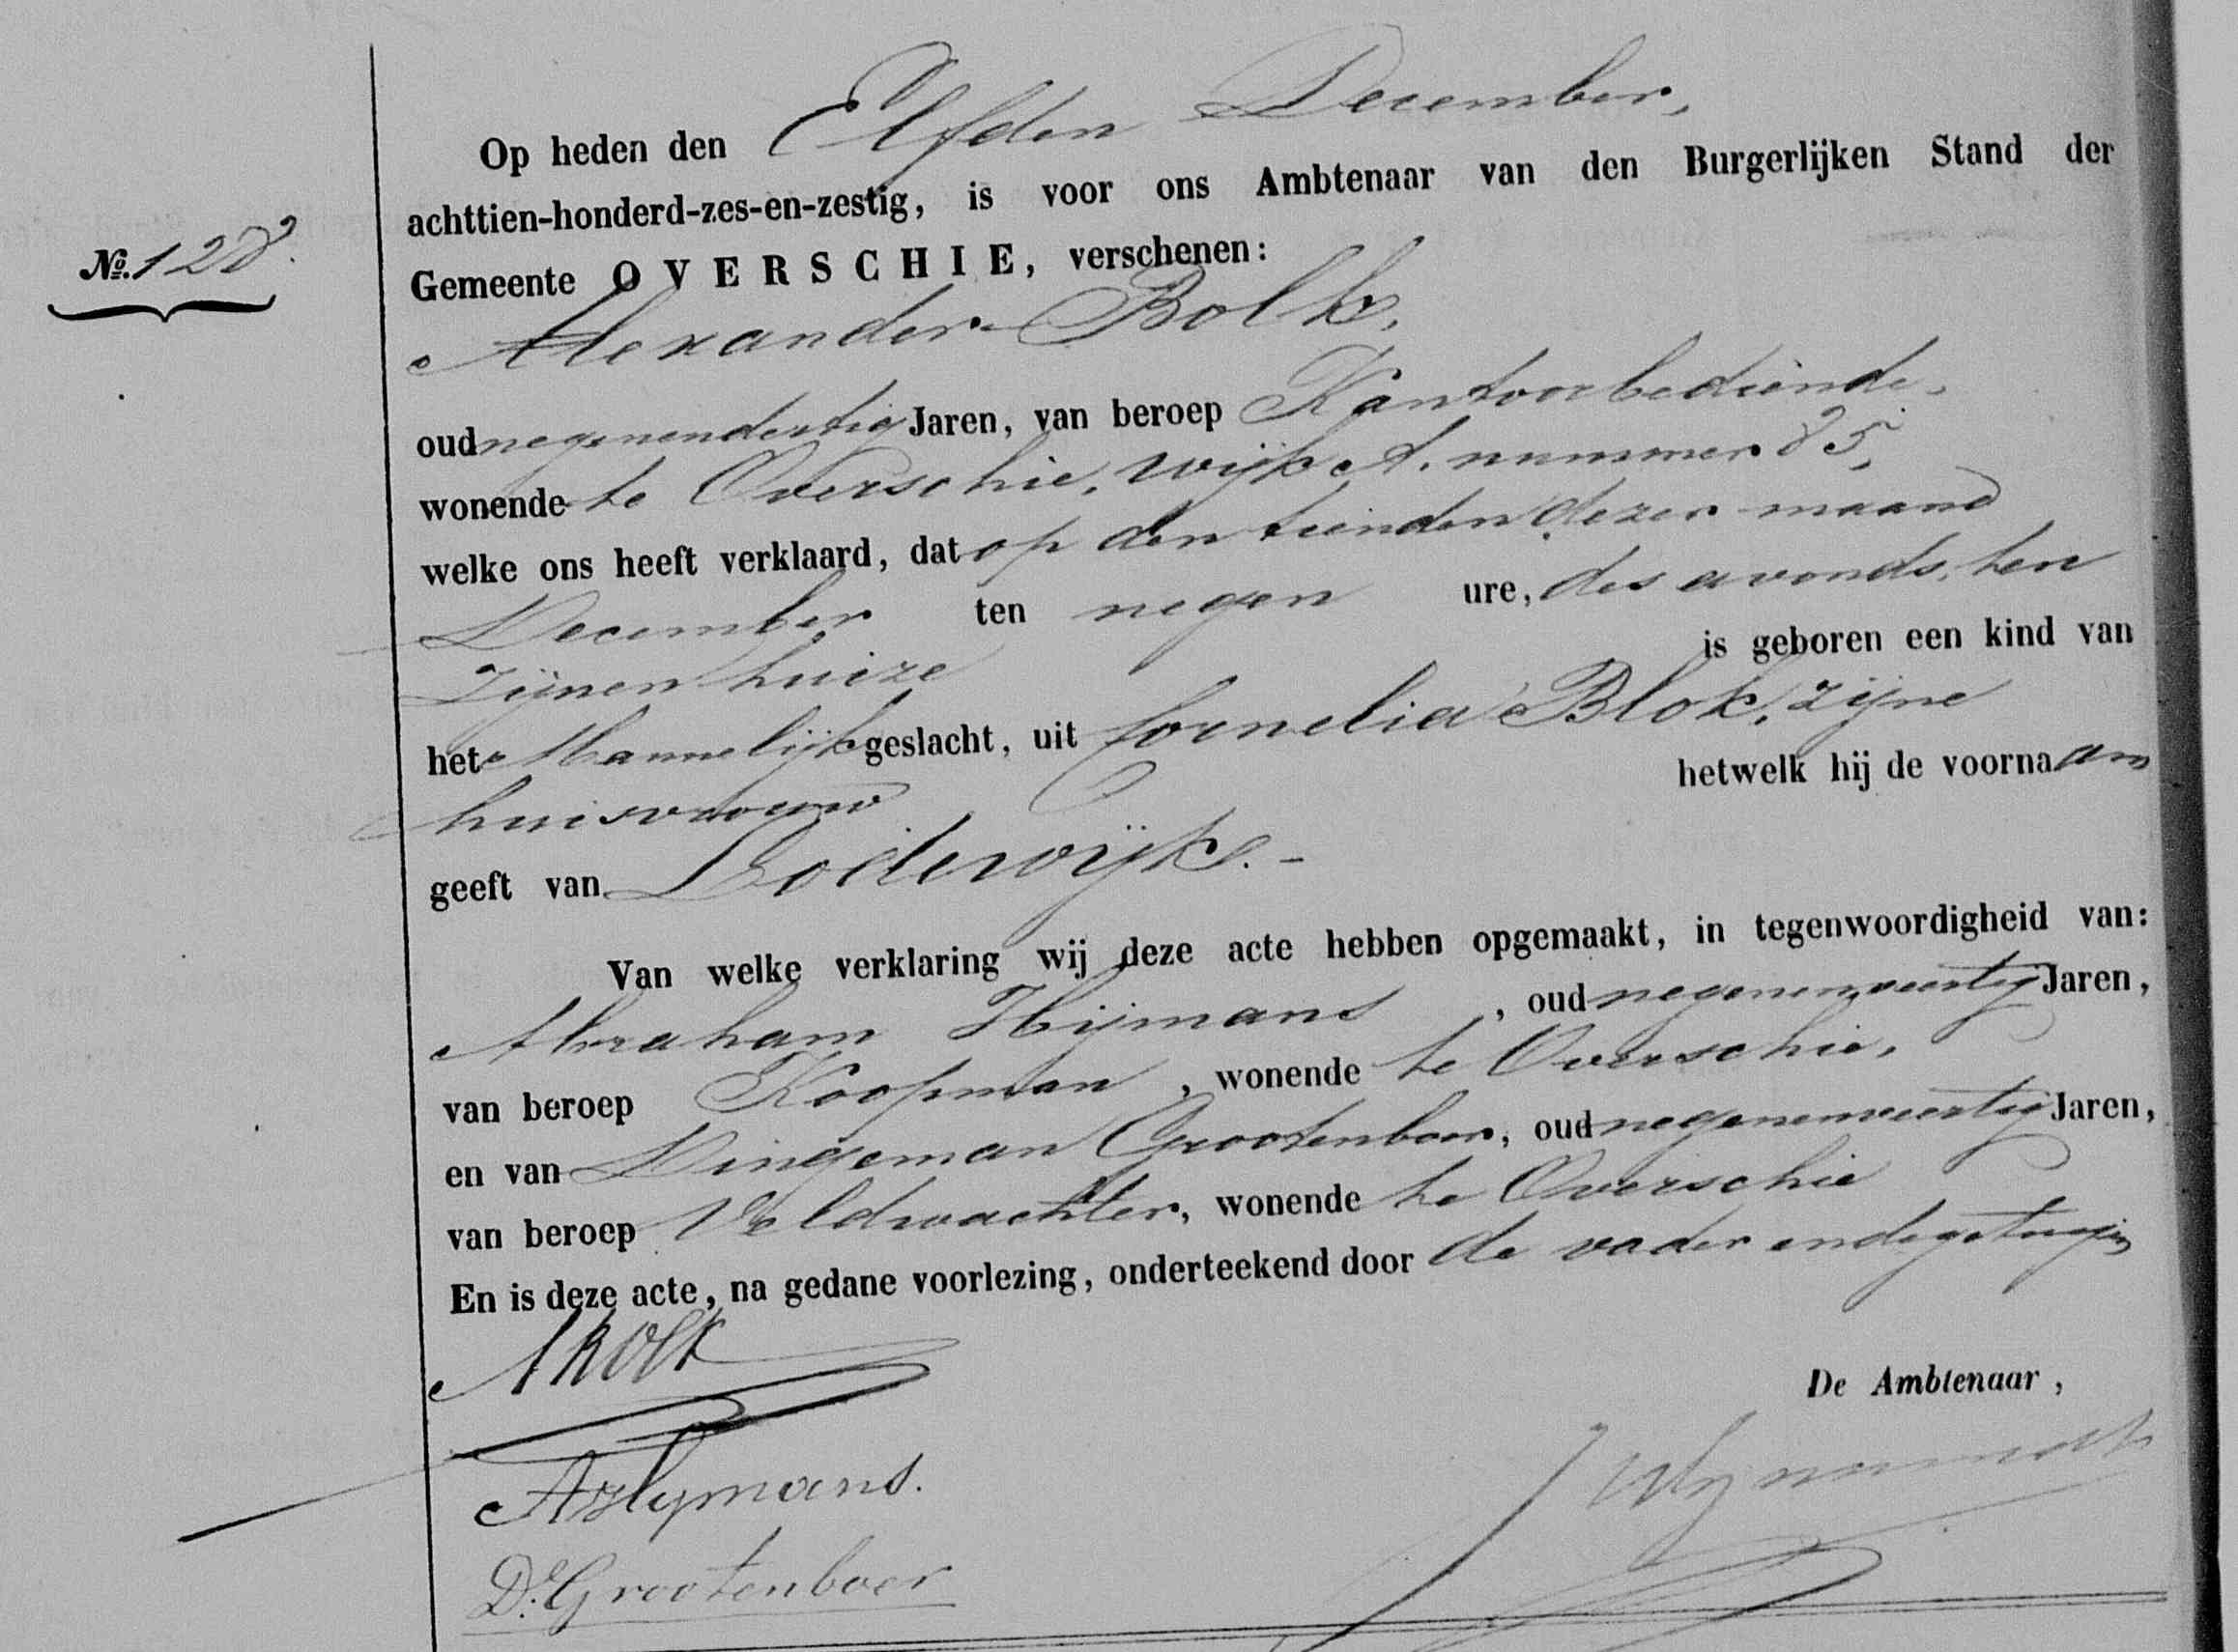 Op heden den Elfden December,
achttien-honderd-zes-en-zestig, is voor ons Ambtenaar van den Burgerlijken Stand der
No. 128.
Gemeente OVERSCHIE, verschenen:
Alexander Bolk,
oud negenendertig Jaren, van beroep Kantoorbediende,
wonende te Overschie, wijk A. nummer 85,
welke ons heeft verklaard, dat op den tienden dezer maand
December ten negen ure, des avonds, ten
zijnen huize is geboren een kind van
het Mannelijk geslacht, uit Cornelia Blok, zijne
huisvrouw hetwelk hij de voornaam
geeft van Lodewijk.-
Van welke verklaring wij deze acte hebben opgemaakt, in tegenwoordigheid van:
Abraham Hijmans, oud negenenveertig Jaren,
van beroep Koopman, wonende te Overschie,
en van Dingeman Grootenboer, oud negenenveertig Jaren,
van beroep Veldwachter, wonende te Overschie
En is deze acte, na gedane voorlezing, onderteekend door de vader en de getuigen
ABolk
De Ambtenaar,
A Hymans.
D. Grootenboer